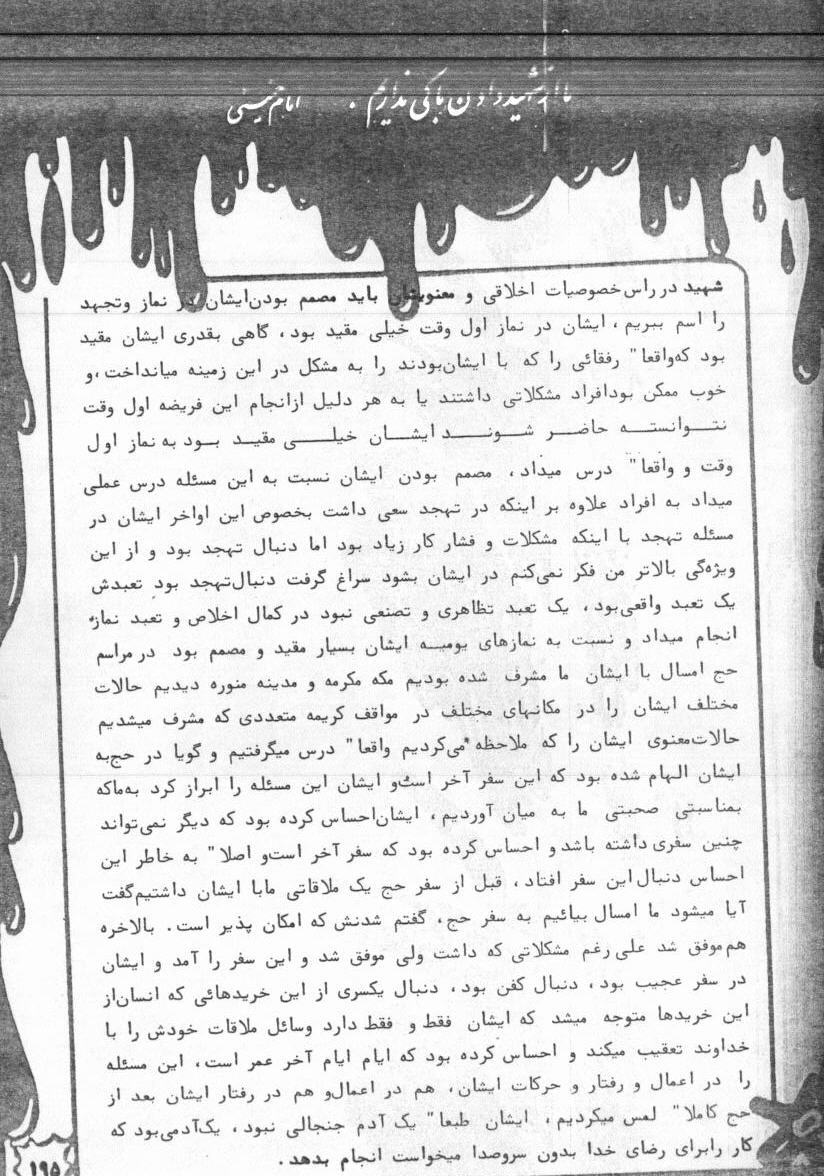 ما از شهید دادن باکی نداریم . امام خمینی
شهید در راس خصوصیات اخلاقی و معنویشان باید مصمم بودن‌ایشان در نماز وتجهد
را اسم ببریم ، ایشان در نماز اول وقت خیلی مقید بود ، گاهی بقدری ایشان مقید
بود که‌واقعا" رفقائی را که با ایشان‌بودند را به مشکل در این زمینه میانداخت ،و
خوب ممکن بودافراد مشکلاتی داشتند یا به هر دلیل ازانجام این فریضه اول وقت
نتوانسته حاضر شوند ایشان خیلی مقید بود به نماز اول
وقت و واقعا" درس میداد ، مصمم بودن ایشان نسبت به این مسئله درس عملی
میداد به افراد علاوه بر اینکه در تهجد سعی داشت بخصوص این اواخر ایشان در
مسئله تهجد با اینکه مشکلات و فشار کار زیاد بود اما دنبال تهجد بود و از این
ویژه‌گی بالاتر من فکر نمی‌کنم در ایشان بشود سراغ گرفت دنبال‌تهجد بود تعبدش
یک تعبد واقعی‌بود ، یک تعبد تظاهری و تصنعی نبود در کمال اخلاص و تعبد نماز
انجام میداد و نسبت به نمازهای یومیه ایشان بسیار مقید و مصمم بود در مراسم
حج امسال با ایشان ما مشرف شده بودیم مکه مکرمه و مدینه منوره دیدیم حالات
مختلف ایشان را در مکانهای مختلف در مواقف کریمه متعددی که مشرف میشدیم
حالات‌معنوی ایشان را که ملاحظه می‌کردیم واقعا" درس میگرفتیم و گویا در حج‌به
ایشان الهام شده بود که این سفر آخر است‌و ایشان این مسئله را ابراز کرد به‌ماکه
بمناسبتی صحبتی ما به میان آوردیم ، ایشان‌احساس کرده بود که دیگر نمی‌تواند
چنین سفری داشته باشد و احساس کرده بود که سفر آخر است‌و اصلا" به خاطر این
احساس دنبال این سفر افتاد ، قبل از سفر حج یک ملاقاتی مابا ایشان داشتیم‌گفت
آیا میشود ما امسال بیائیم به سفر حج ، گفتم شدنش که امکان پذیر است . بالاخره
هم موفق شد علی رغم مشکلاتی که داشت ولی موفق شد و این سفر را آمد و ایشان
در سفر عجیب بود ، دنبال کفن بود ، دنبال یکسری از این خریدهائی که انسان‌از
این خریدها متوجه میشد که ایشان فقط و فقط دارد وسائل ملاقات خودش را با
خداوند تعقیب میکند و احساس کرده بود که ایام ایام آخر عمر است ، این مسئله
را در اعمال و رفتار و حرکات ایشان ، هم در اعمال‌و هم در رفتار ایشان بعد از
حج کاملا" لمس میکردیم ، ایشان طبعا" یک آدم جنجالی نبود ، یک‌آدمی‌بود که
کار رابرای رضای خدا بدون سروصدا میخواست انجام بدهد .
۱۹۵